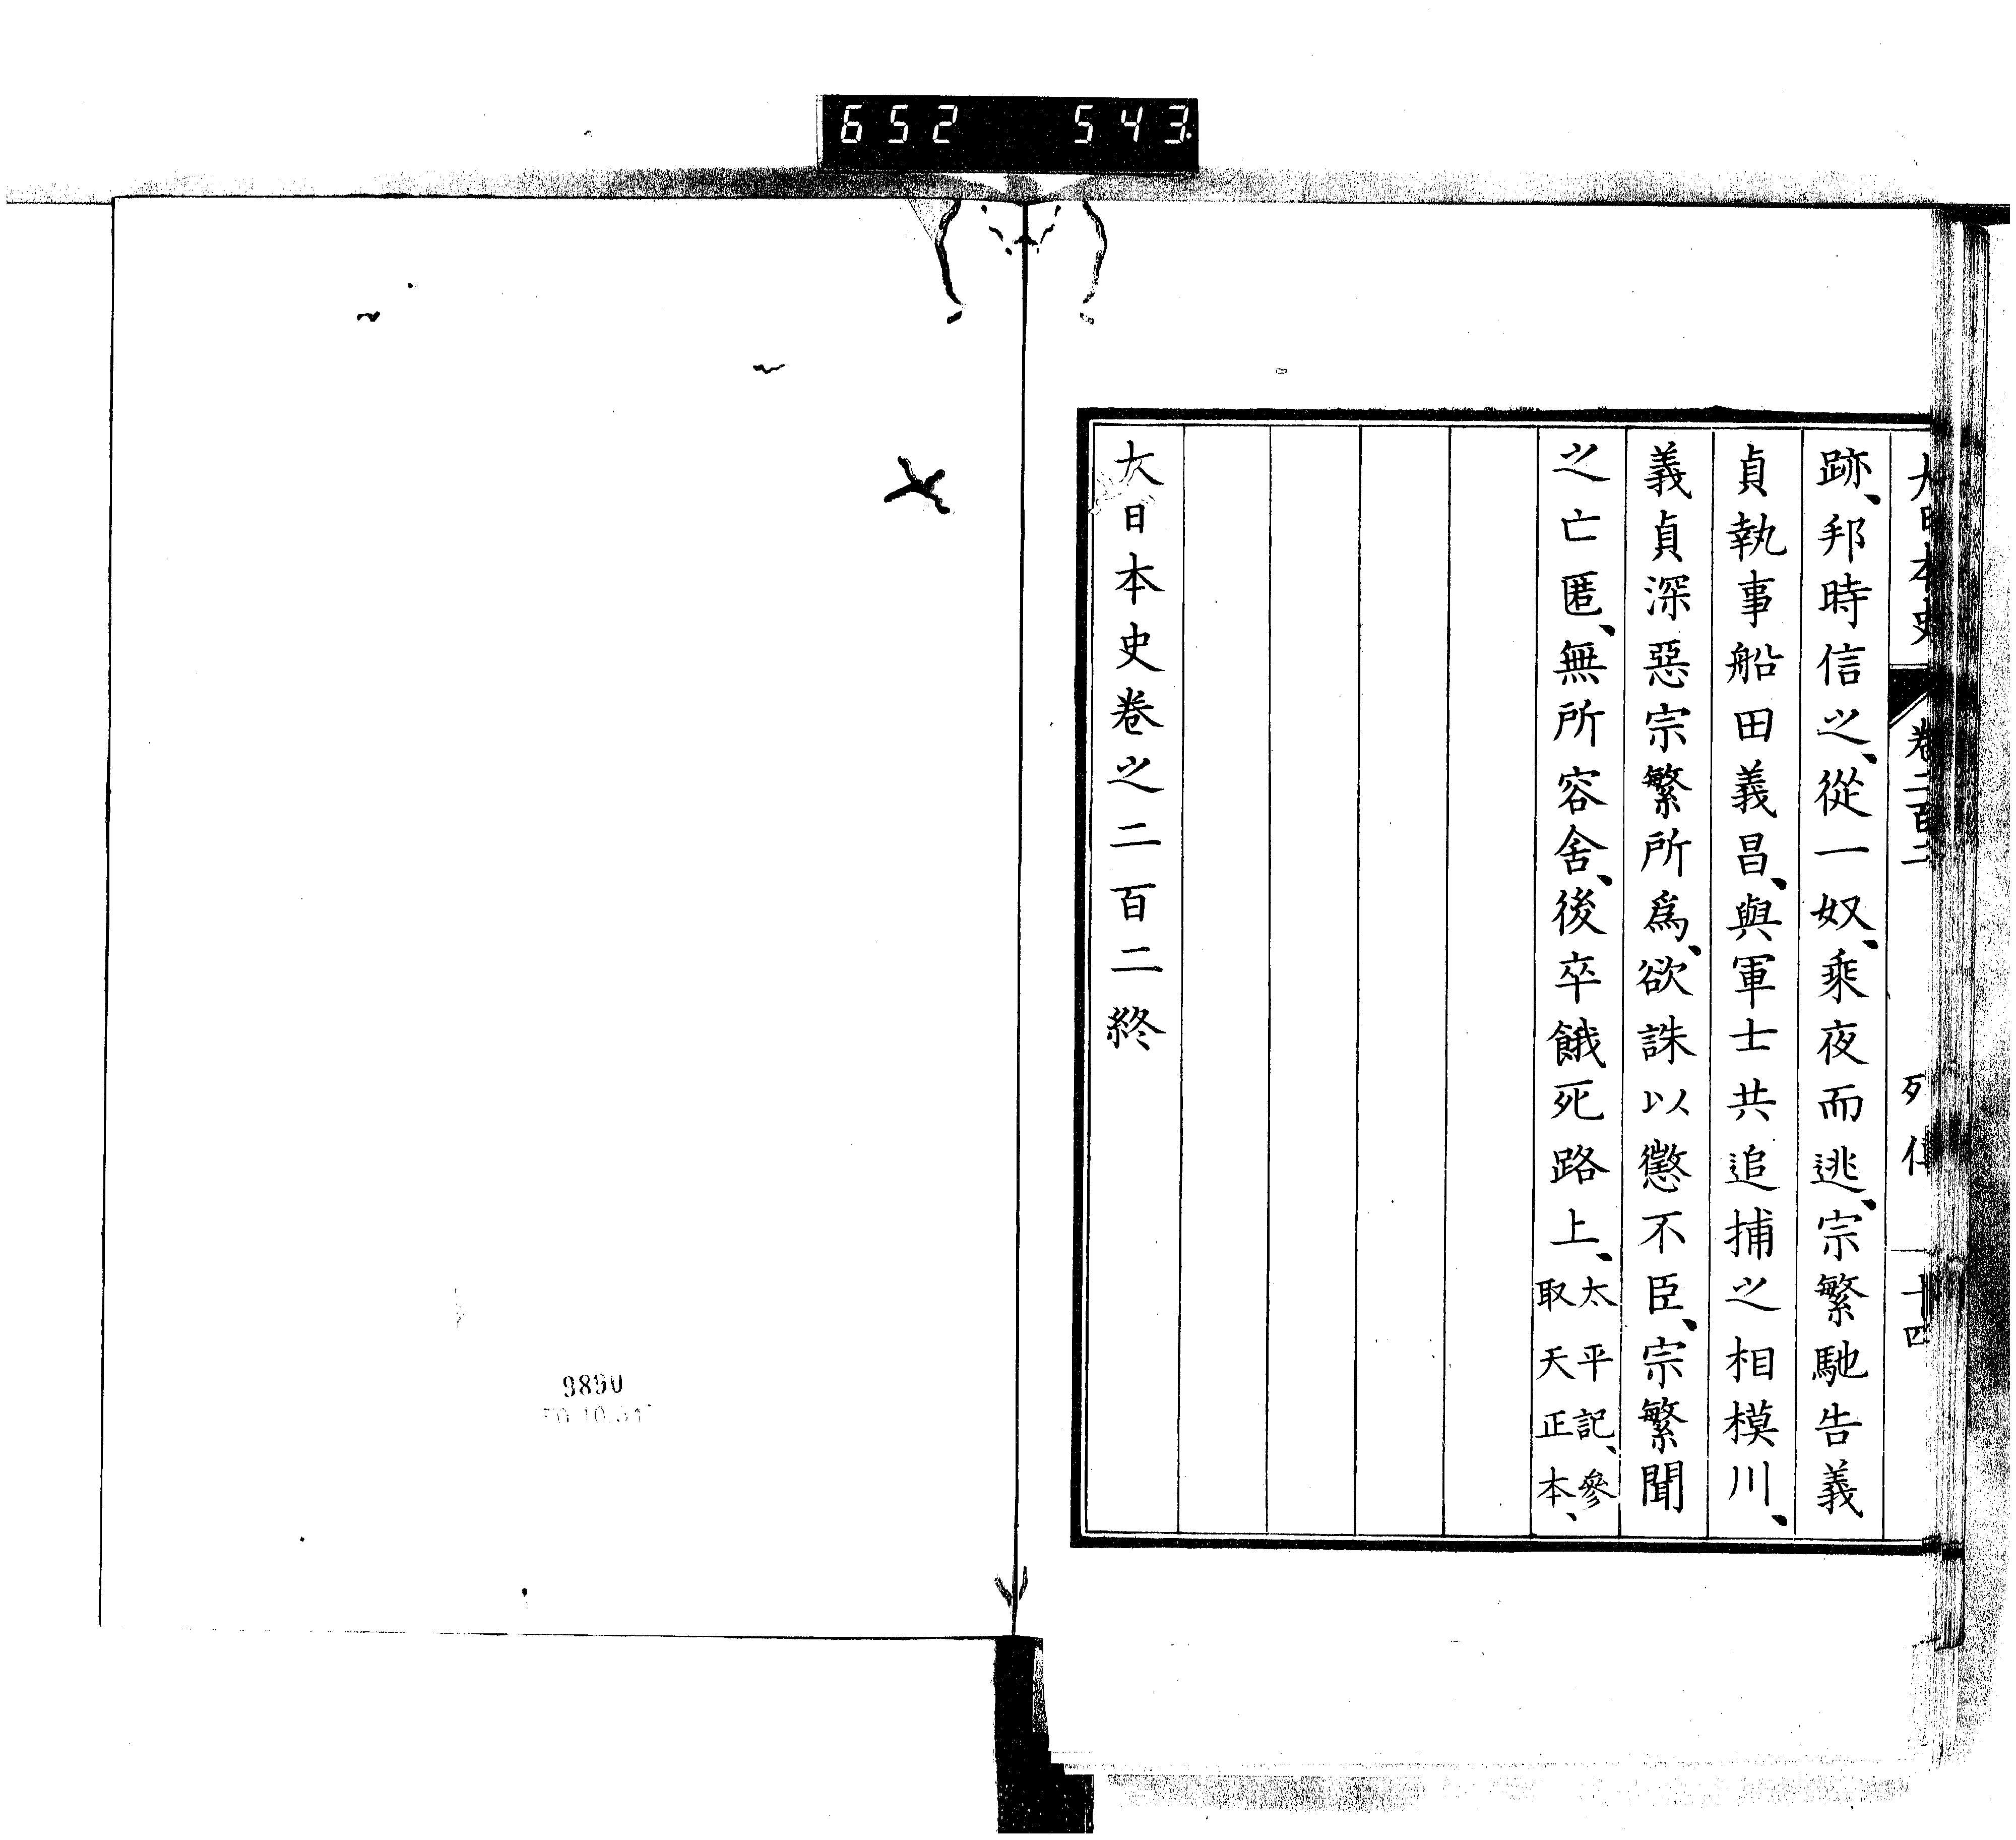 652 543
大日本史 卷二百二 列傳 十四
跡、邦時信之、從一奴、乘夜而逃、宗繁馳告義
貞執事船田義昌、與軍士共追捕之相模川、
義貞深惡宗繁所爲、欲誅以懲不臣、宗繁聞
之亡匿、無所容舍、後卒餓死路上、太平記、參取天正本、
大日本史卷之二百二終
9890